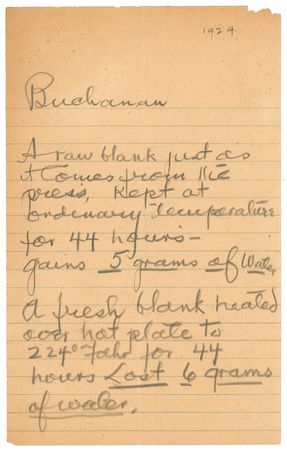 1924
Buchanan
A raw blank just as
it comes from the
press, Kept at
ordinary temperature
for 44 hours—
gains 5 grams of Water
A fresh blank heated
over hot plate to
224° Fahr for 44
hours Lost 6 grams
of water.